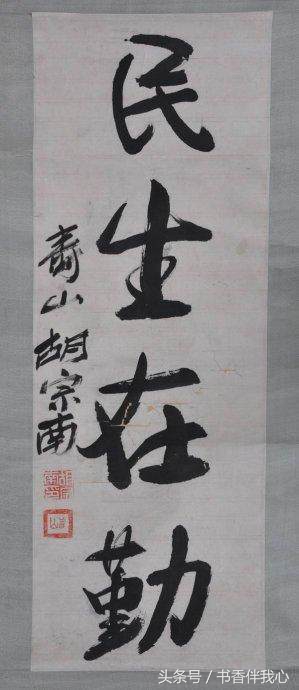 民生在勤
壽山胡宗南
头条号／书香伴我心